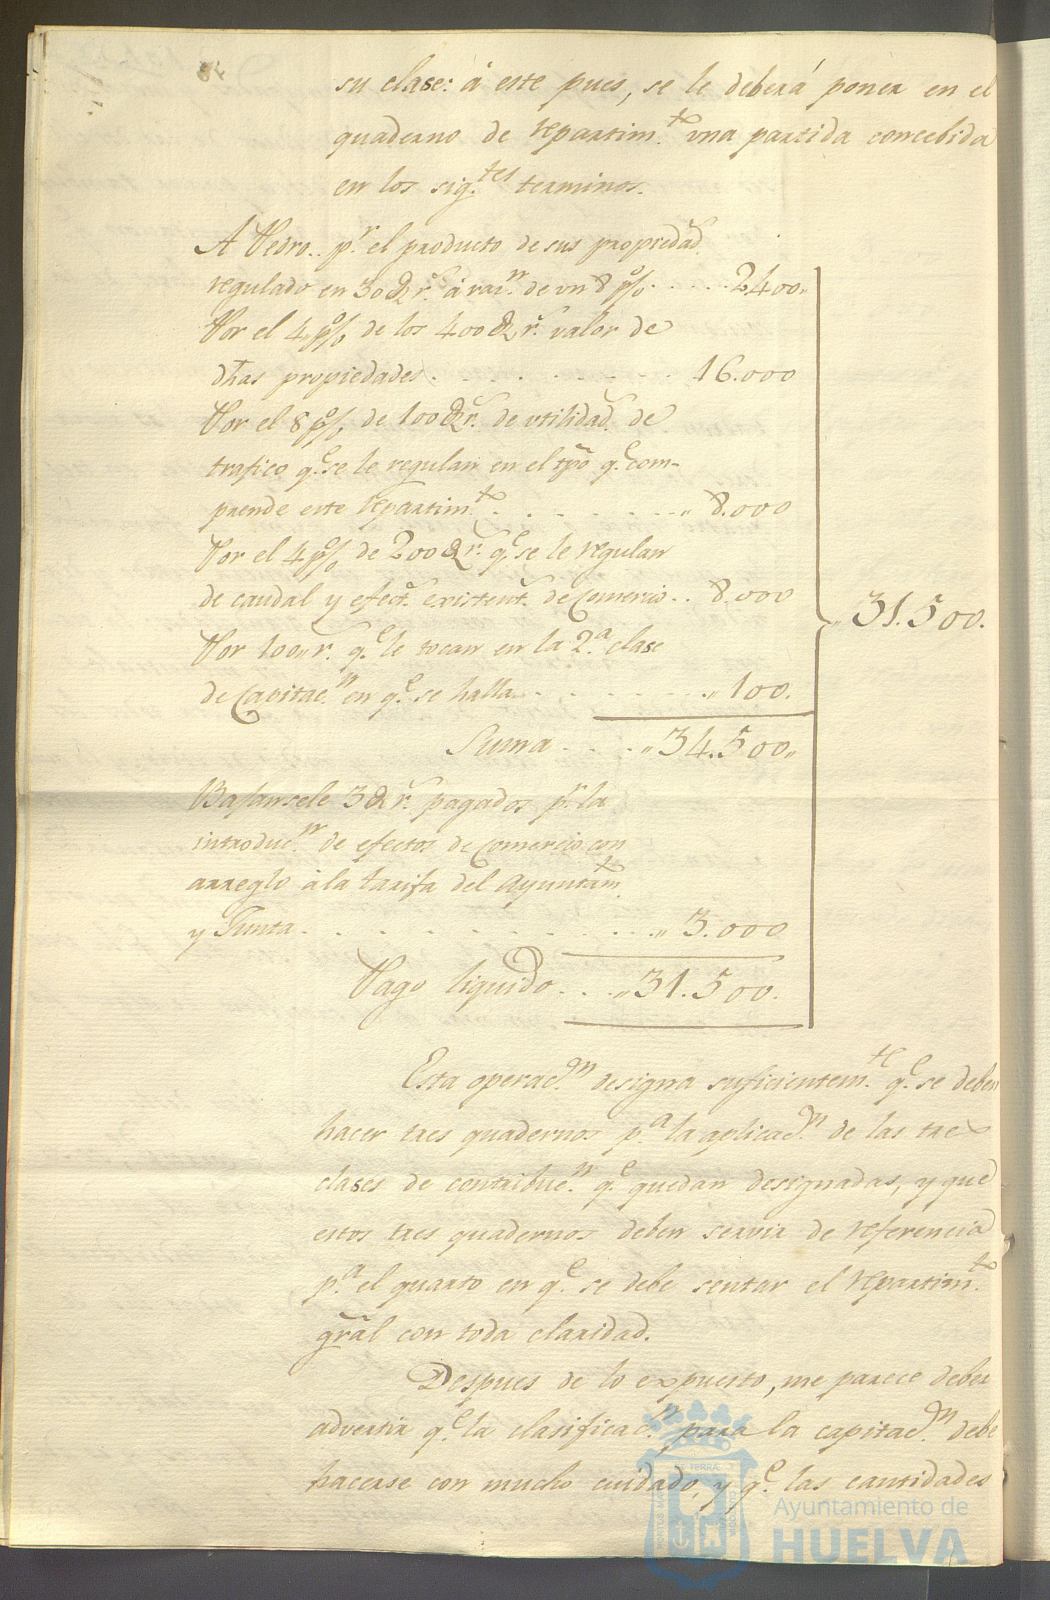 su clase: á este pues, se le deberá poner en el
quaderno de repartim.to vna partida concebida
en los sig.tes terminos.
A Pedro.. p.r el producto de sus propiedad.s
regulado en 30 D r.s á raz.n de vn 8 p% ..... 2400,,
Por el 4 p% de los 400 D r.s valor de
dhas propiedades ........ 16.000
Por el 8 p% de 100 D r.s de vtilidad.s de
trafico q.e se le regulan en el tpo q.e com-
prende este repartim.to ....... 8.000
Por el 4 p% de 200 D r.s q.e se le regulan
de caudal y efect.s existent.s de Comercio .. 8.000
Por 100,, r.s q.e le tocan en la 2.a clase
de Capitac.n en q.e se halla ....... ,,100.
,,31.500.
Suma .... ,,34.500,,
Bajansele 3 D r.s pagados p.r la
introduc.n de efectos de Comercio con
arreglo á la tarifa del Ayuntam.to
y Junta ........... ,,3.000
Pago liquido .... ,,31.500.
Esta operac.n designa suficientem.te q.e se deben
hacer tres quadernos p.a la aplicac.n de las tres
clases de contribuc.n q.e quedan designadas, y que
estos tres quadernos deben servir de referencia
p.a el quarto en q.e se debe sentar el repartim.to
gral con toda claridad.
Despues de lo expuesto, me parece deber
advertir q.e la clasificac.n para la capitac.n debe
hacerse con mucho cuidado, y q.e las cantidades
Ayuntamiento de
HUELVA